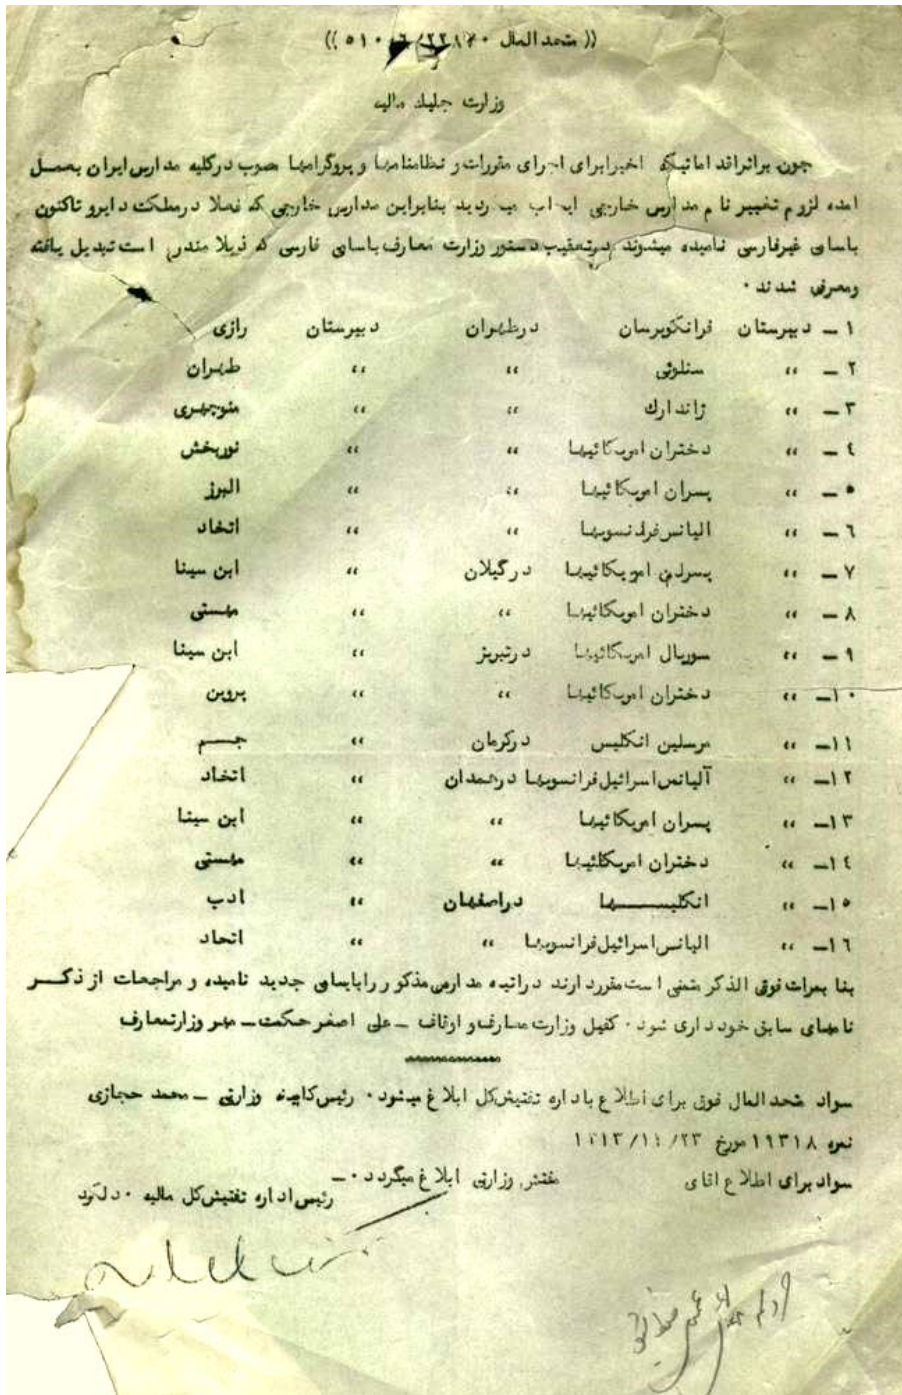 (( متحدالمال ۲۲۱۴۰/ ۵۱۰ ))
وزارت جلیله مالیه
چون براثراقداماتیکه اخیرابرای اجرای مقررات و نظامنامها و پروگرامها مصوب درکلیه مدارس ایران بعمل
امده لزوم تغییر نام مدارس خارجی ایجاب میگردید بنابراین مدارس خارجی که فعلا درمملکت دایرو تاکنون
باسامی غیرفارسی نامیده میشوند درتعقیب دستور وزارت معارف باسامی فارسی که ذیلا مندرج است تبدیل یافته
ومعرفی شدند ۰
۱ – دبیرستان فرانکوپرسان درطهران دبیرستان رازی
۲ – ،، سنلوئی ،، ،، طهران
۳ – ،، ژاندارك ،، ،، منوچهری
٤ – ،، دختران امریکائیها ،، ،، نوربخش
۵ – ،، پسران امریکائیها ،، ،، البرز
٦ – ،، الیانس فرانسویها ،، ،، اتحاد
۷ – ،، پسران امریکائیها درگیلان ،، ابن سینا
۸ – ،، دختران امریکائیها ،، ،، مهستی
۹ – ،، موریال امریکائیها درتبریز ،، ابن سینا
۱۰– ،، دختران امریکائیها ،، ،، پروین
۱۱– ،، مرسلین انکلیس درکرمان ،، جــم
۱۲– ،، آلیانس اسرائیل فرانسویها درهمدان ،، اتحاد
۱۳– ،، پسران امریکائیها ،، ،، ابن سینا
۱٤– ،، دختران امریکائیها ،، ،، مهستی
۱۵– ،، انکلیســـها دراصفهان ،، ادب
۱٦– ،، الیانس اسرائیل فرانسویها ،، ،، اتحاد
بنا بمراتب فوق الذکر متمنی است مقرردارند دراتیه مدارس مذکور راباسامی جدید نامیده و مراجعات از ذکــر
نامهای سابق خودداری شود ۰ کفیل وزارت معارف و اوقاف – علی اصغر حکمت – مهر وزارتمعارف
سواد متحدالمال فوق برای اطلاع باداره تفتیش کل ابلاغ میشود ۰ رئیس کابینه وزارتی – محمد حجازی
نمره ۱۹۳۱۸ مورخ ۲۳/ ۱۱/ ۱۳۱۳
سواد برای اطلاع اقای مفتش وزارتی ابلاغ میگردد ۰–
رئیس اداره تفتیش کل مالیه ۰